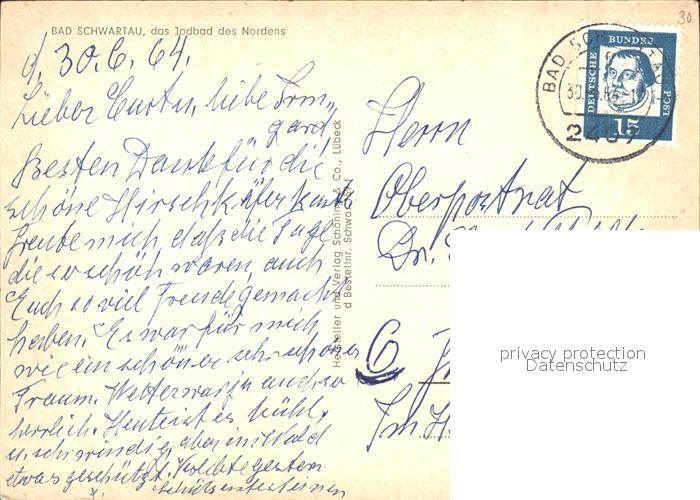 BAD SCHWARTAU, das Jodbad des Nordens
30.6.64.
Lieber Curtu, liebe Irm-
gard
Besten Dank für die
schöne Hirschkäferkarte
freute mich, daß die Tage
die so schön waren, auch
Euch so viel Freude gemacht
haben. Es war für mich
wie ein schöner sehr schöner
Traum. Wetter war ja auch so
herrlich. Heute ist es kühl,
u. schwindig, aber im Wald
etwas geschützt. gestern
Hersteller und Verlag Schöning & Co., Lübeck
Bestellnr. Schwa
Herrn
Oberpostrat
Dr.
6
Im H
BAD SCHWARTAU
30
2407
DEUTSCHE BUNDESPOST
15
30
privacy protection
Datenschutz